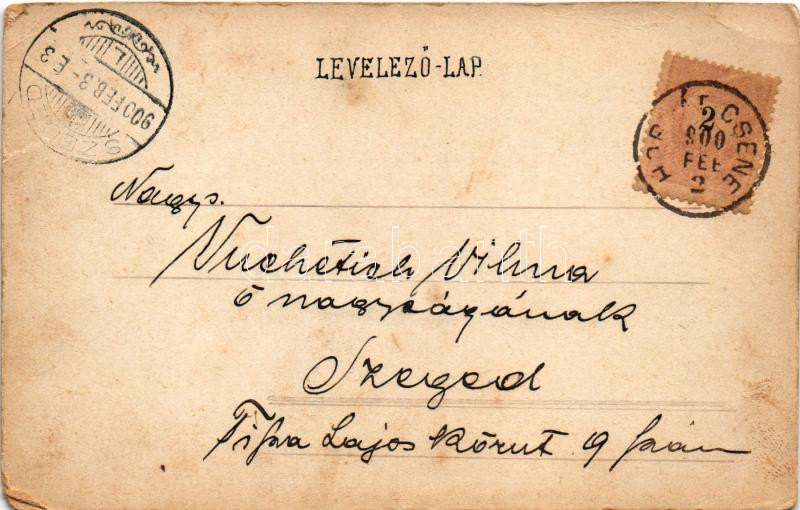 LEVELEZŐ-LAP.
SZEGED
900 FEB. 3 - E 3
2
CSENE
900
FEB
2
Nagys.
Vuchetich Vilma
ő nagyságának
Szeged
Tisza Lajos körut 9 szám
darabanth